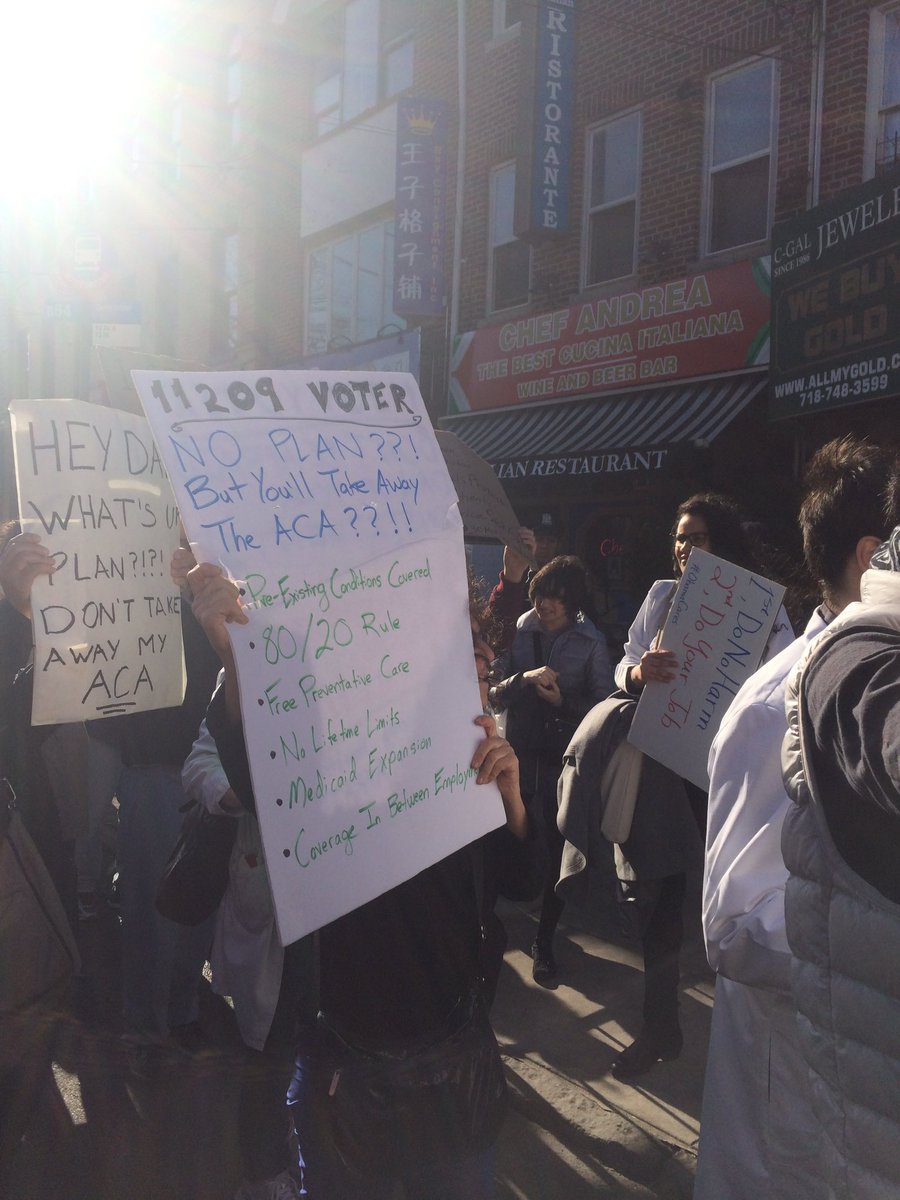 RISTORANTE
王子格子铺
CHEF ANDREA
THE BEST CUCINA ITALIANA
WINE AND BEER BAR
RESTAURANT
C-GAL
SINCE 1986
WE BUY
GOLD
WWW.ALLMYGOLD.C
718-748-3599
B64
HEY DA
WHAT'S U
PLAN?!?!
DON'T TAKE
AWAY MY
ACA
11209 VOTER
NO PLAN??!
But You'll Take Away
The ACA??!!
• Pre-Existing Conditions Covered
• 80/20 Rule
• Free Preventative Care
• No Lifetime Limits
• Medicaid Expansion
• Coverage In Between Employm
#ObamaCares
1st, Do No Harm
2nd, Do Your Job